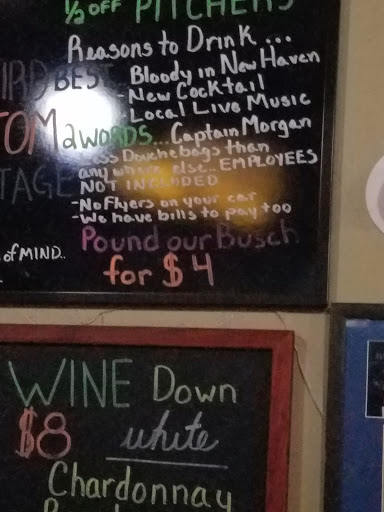 ½ OFF PITCHERS
Reasons to Drink...
BEST Bloody in New Haven
- New Cocktail
- Local Live Music
2 WORDS... Captain Morgan
Less Douchebags than
any where else.. EMPLOYEES
NOT INCLUDED
- No Flyers on your car
- We have bills to pay too
Pound our Busch
for $4
of MIND..
WINE Down
$8 white
Chardonnay